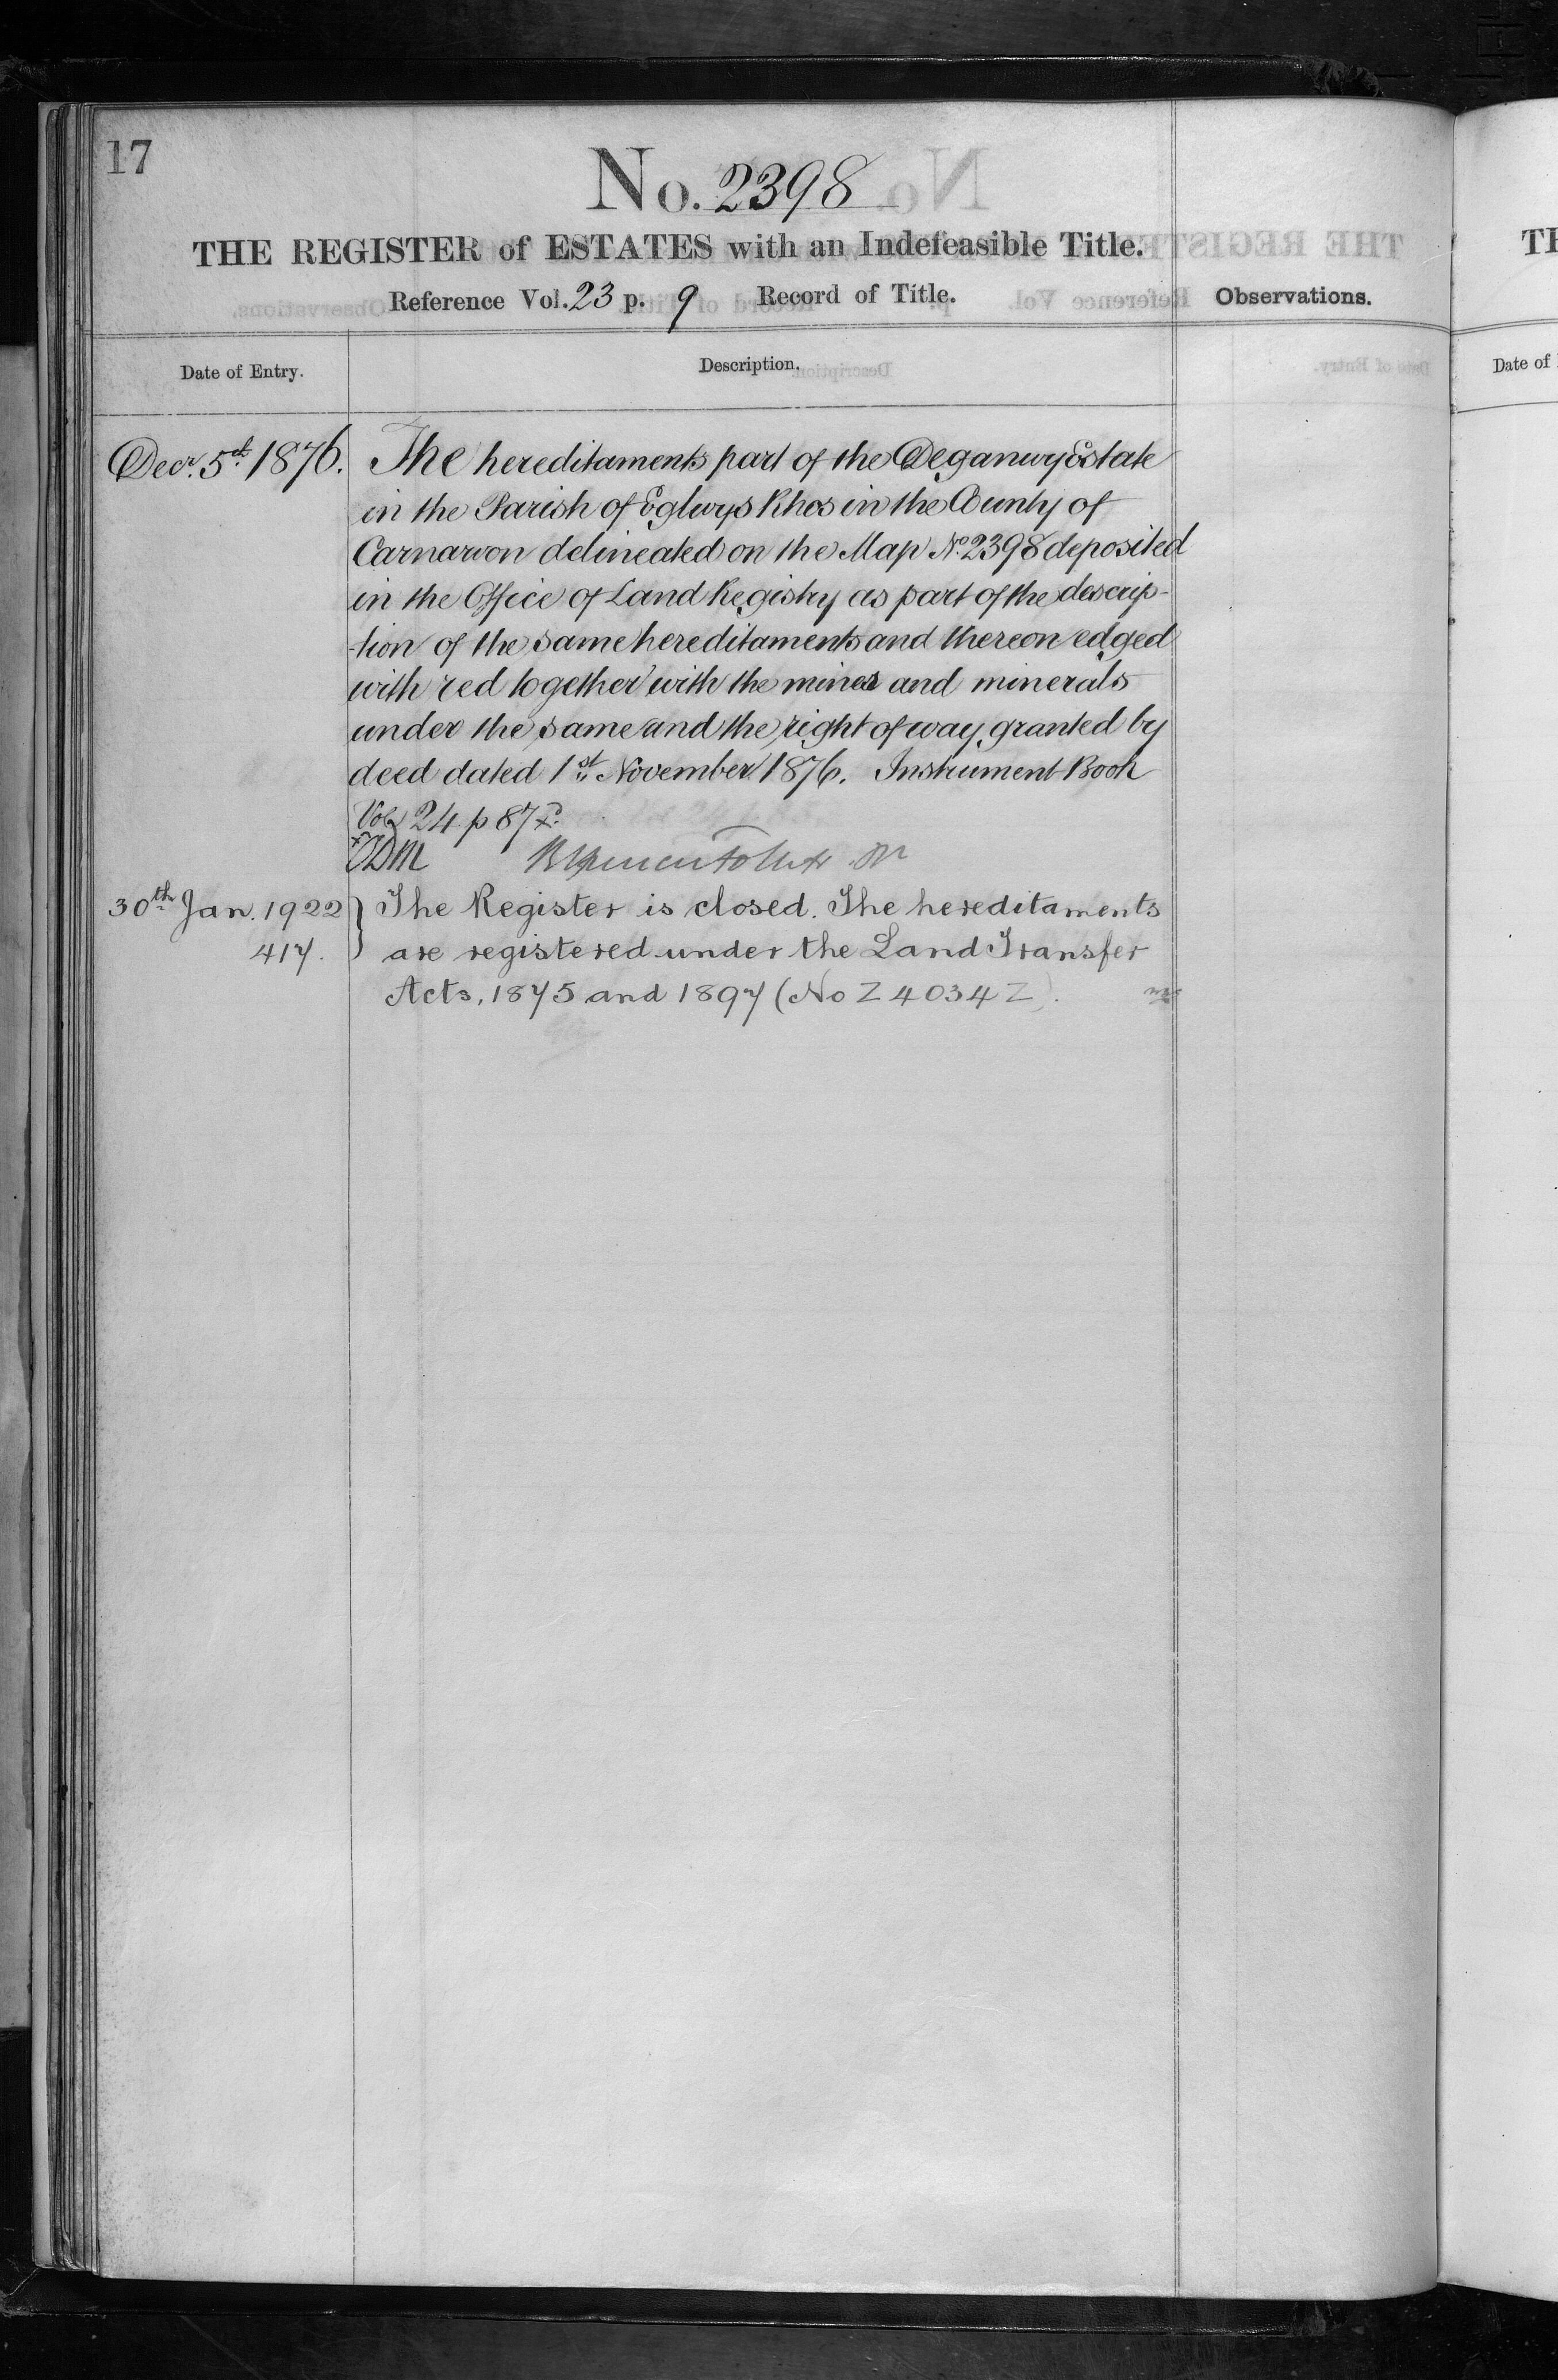 17
No. 2398
THE REGISTER of ESTATES with an Indefeasible Title.
Reference Vol. 23 p. 9 Record of Title.
Observations.
Date of Entry.
Description.
Decr. 5th 1876.
The hereditaments part of the Deganwy Estate
in the Parish of Eglwys Rhos in the County of
Carnarvon delineated on the Map No. 2398 deposited
in the Office of Land Registry as part of the descrip-
-tion of the same hereditaments and thereon edged
with red together with the mines and minerals
under the same and the right of way granted by
deed dated 1st November 1876. Instrument Book
Vol 24 p 87
30th Jan. 1922
417.
The Register is closed. The hereditaments
are registered under the Land Transfer
Acts, 1875 and 1897 (No Z 4034 Z).
TH
Date of